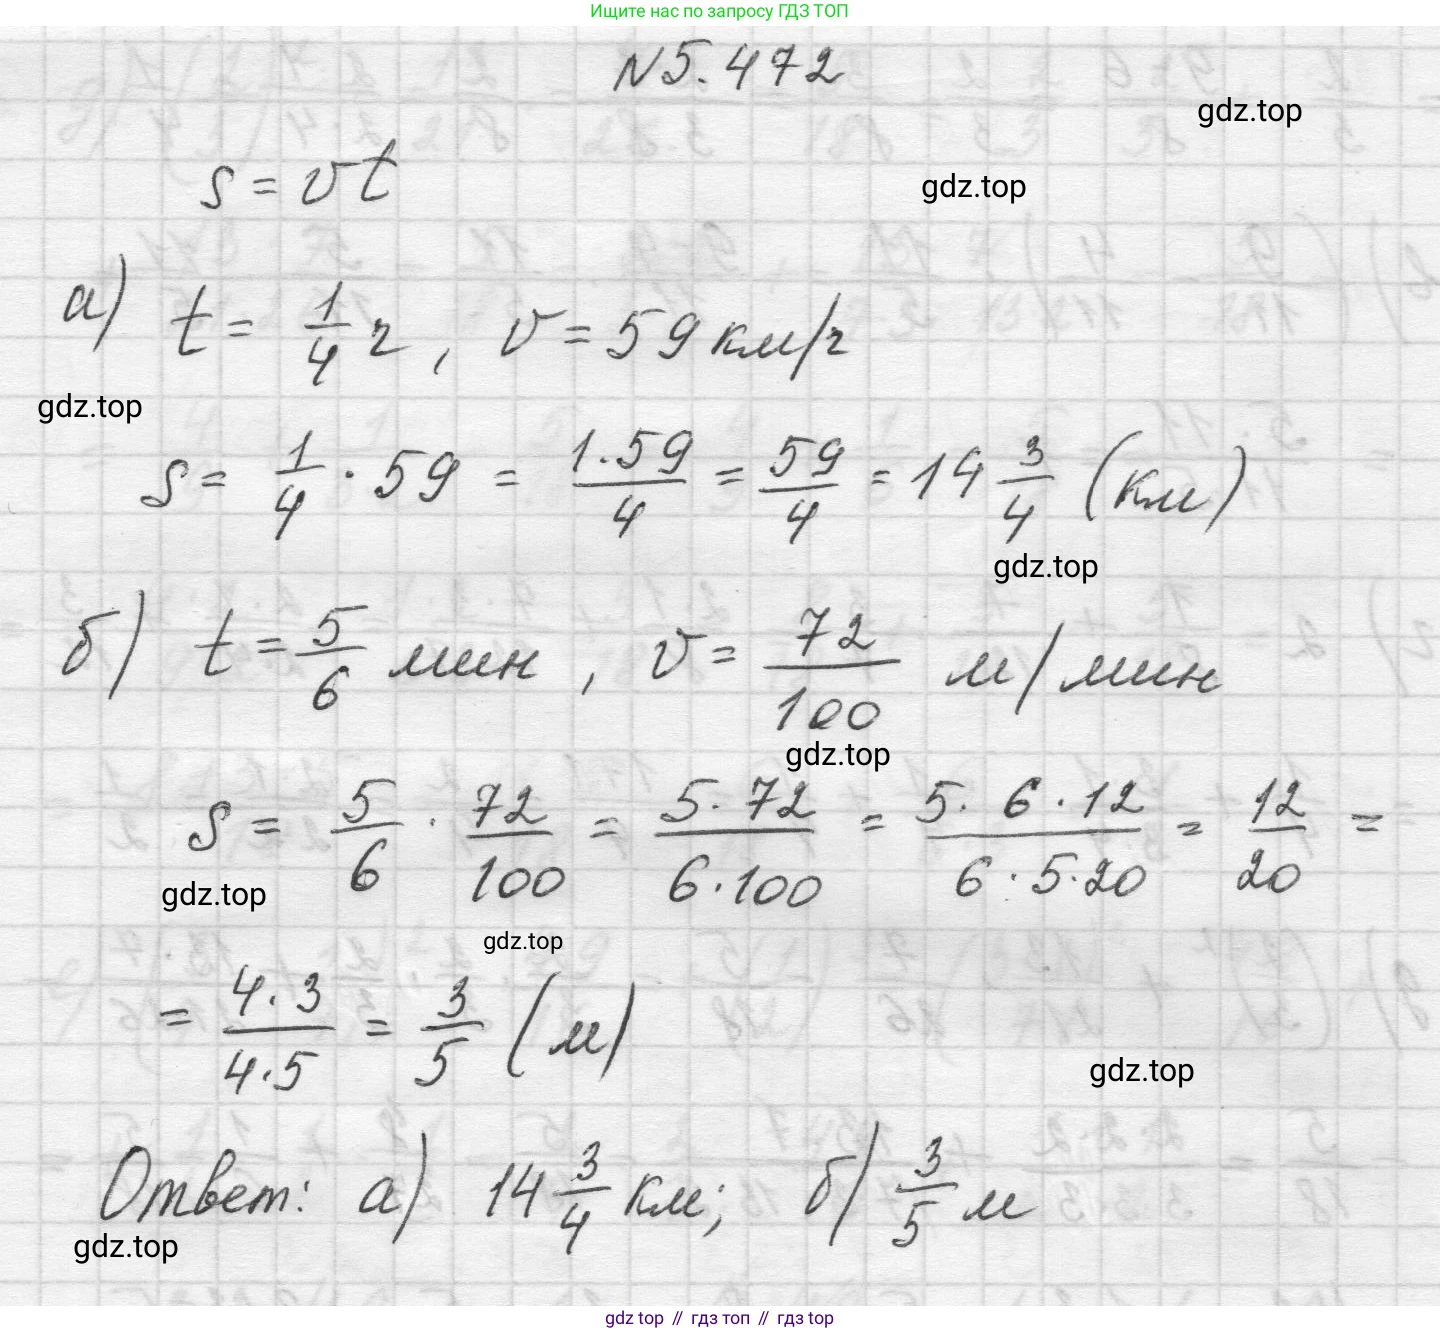 Ищите нас по запросу ГДЗ ТОП
N5.472
gdz.top
s = vt
gdz.top
а) t = 1/4 ч, v = 59 км/ч
gdz.top
s = 1/4 · 59 = 1·59/4 = 59/4 = 14 3/4 (км)
gdz.top
б) t = 5/6 мин, v = 72/100 м/мин
gdz.top
s = 5/6 · 72/100 = 5·72/6·100 = 5·6·12/6·5·20 = 12/20 =
gdz.top
gdz.top
= 4·3/4·5 = 3/5 (м)
gdz.top
Ответ: а) 14 3/4 км; б) 3/5 м
gdz.top
gdz top // гдз топ // гдз top